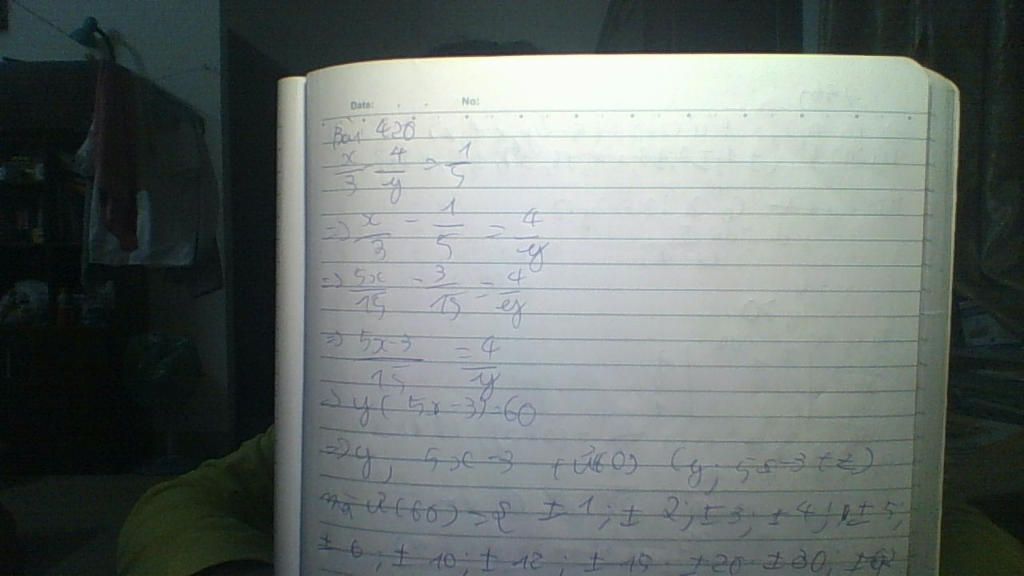 Date: No:
Bài 420
x/3 - 4/y = 1/5
=> x/3 - 1/5 = 4/y
=> 5x/15 - 3/15 = 4/y
=> 5x-3/15 = 4/y
=> y(5x-3)=60
=> y, 5x-3 Ư(60) (y; 5x-3 ∈ Z)
mà Ư(60) = { ±1; ±2; ±3; ±4; ±5;
±6; ±10; ±12; ±15 ±20 ±30;